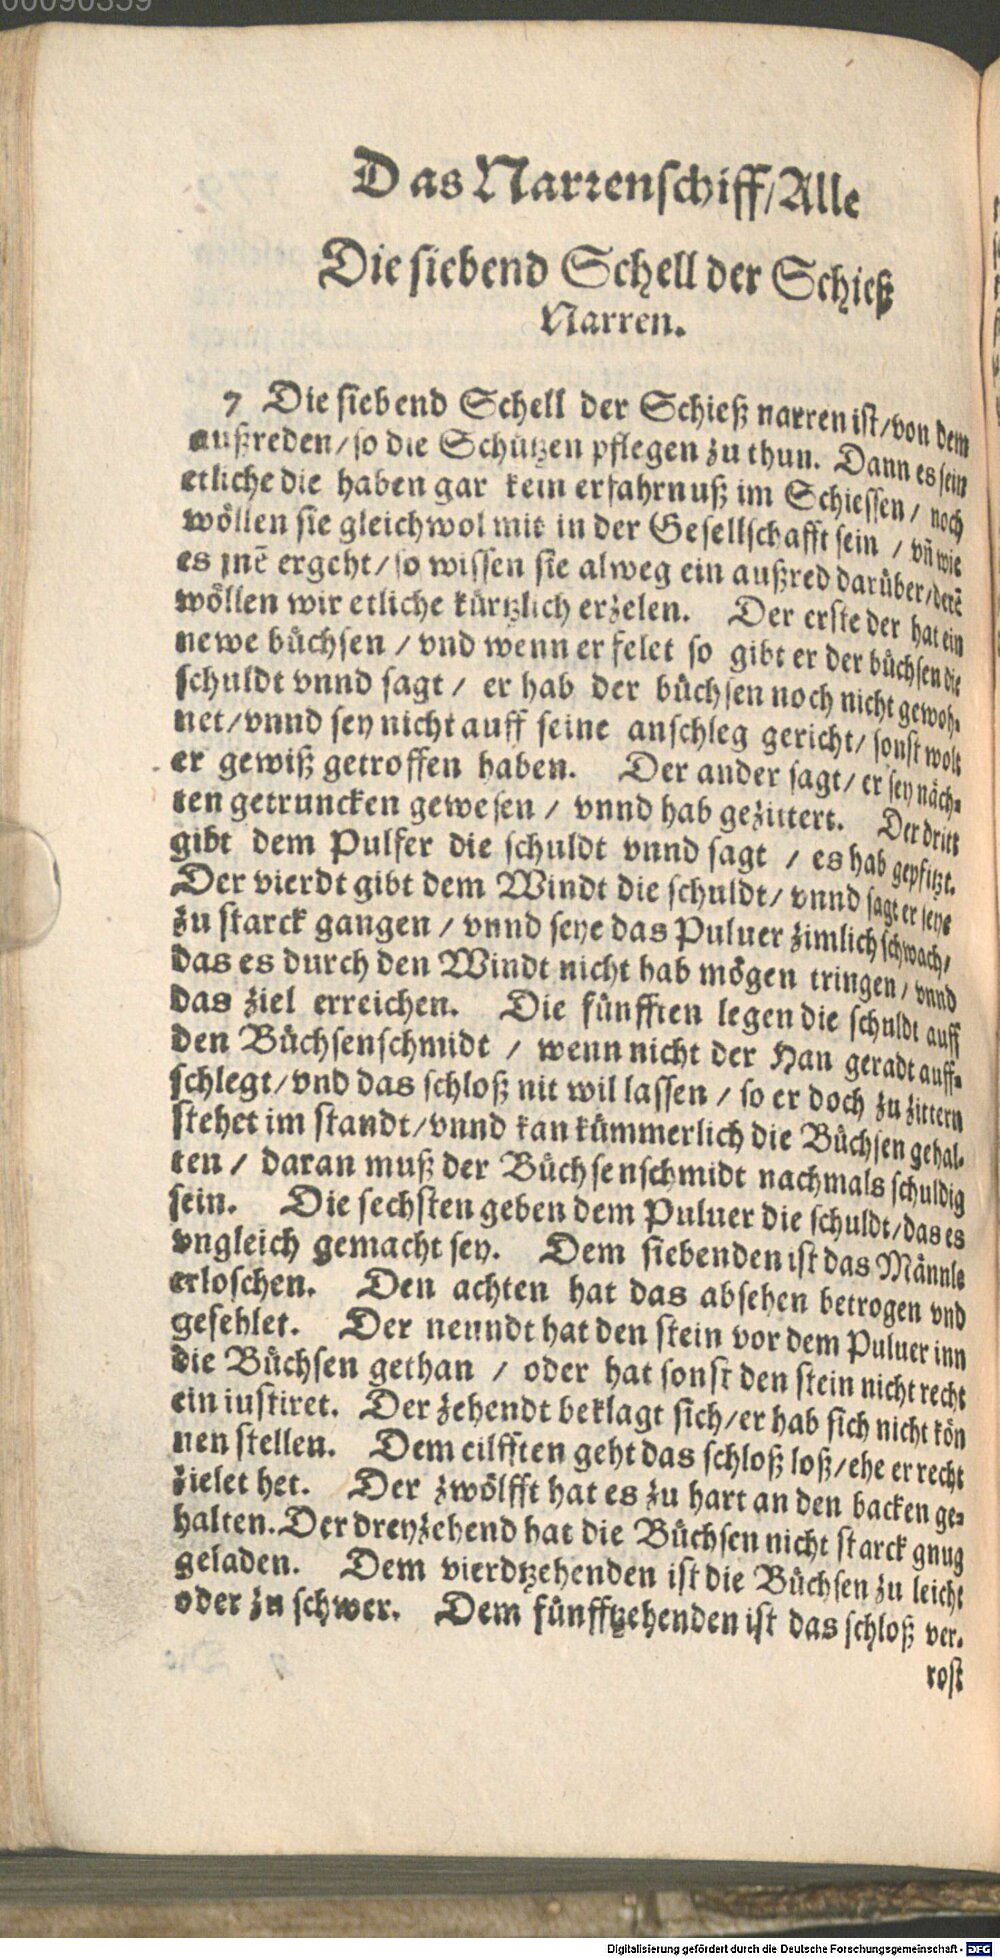 00090359
Das Narrenschiff/Alle
Die siebend Schell der Schieß
Narren.
7 Die siebend Schell der Schieß narren ist/von dem
außreden/so die Schützen pflegen zu thun. Dann es sein
etliche die haben gar kein erfahrnuß im Schiessen/ noch
wöllen sie gleichwol mit in der Gesellschafft sein / vñ wie
es jnẽ ergeht/so wissen sie alweg ein außred darüber/derẽ
wöllen wir etliche kürtzlich erzelen. Der erste der hat ein
newe büchsen / vnd wenn er felet so gibt er der büchsen die
schuldt vnnd sagt / er hab der büchsen noch nicht gewoh-
net/vnnd sey nicht auff seine anschleg gericht/ sonst wolt
er gewiß getroffen haben. Der ander sagt/ er sey näch-
ten getruncken gewesen / vnnd hab gezittert. Der dritt
gibt dem Pulfer die schuldt vnnd sagt / es hab gepfitzt.
Der vierdt gibt dem Windt die schuldt/ vnnd sagt er seye
zu starck gangen / vnnd seye das Puluer zimlich schwach/
das es durch den Windt nicht hab mögen tringen/ vnnd
das ziel erreichen. Die fünfften legen die schuldt auff
den Büchsenschmidt / wenn nicht der Han geradt auff-
schlegt/vnd das schloß nit wil lassen / so er doch zu zittern
stehet im standt/vnnd kan kümmerlich die Büchsen gehal-
ten / daran muß der Büchsenschmidt nachmals schuldig
sein. Die sechsten geben dem Puluer die schuldt/das es
vngleich gemacht sey. Dem siebenden ist das Männle
erloschen. Den achten hat das absehen betrogen vnd
gefehlet. Der neundt hat den stein vor dem Puluer inn
die Büchsen gethan / oder hat sonst den stein nicht recht
ein iustiret. Der zehendt beklagt sich/er hab sich nicht kön
nen stellen. Dem eilfften geht das schloß loß/ehe er recht
zielet het. Der zwölfft hat es zu hart an den backen ge-
halten. Der dreyzehend hat die Büchsen nicht starck gnug
geladen. Dem vierdtzehenden ist die Büchsen zu leicht
oder zu schwer. Dem fünfftzehenden ist das schloß ver-
rost
Digitalisierung gefördert durch die Deutsche Forschungsgemeinschaft - DFG